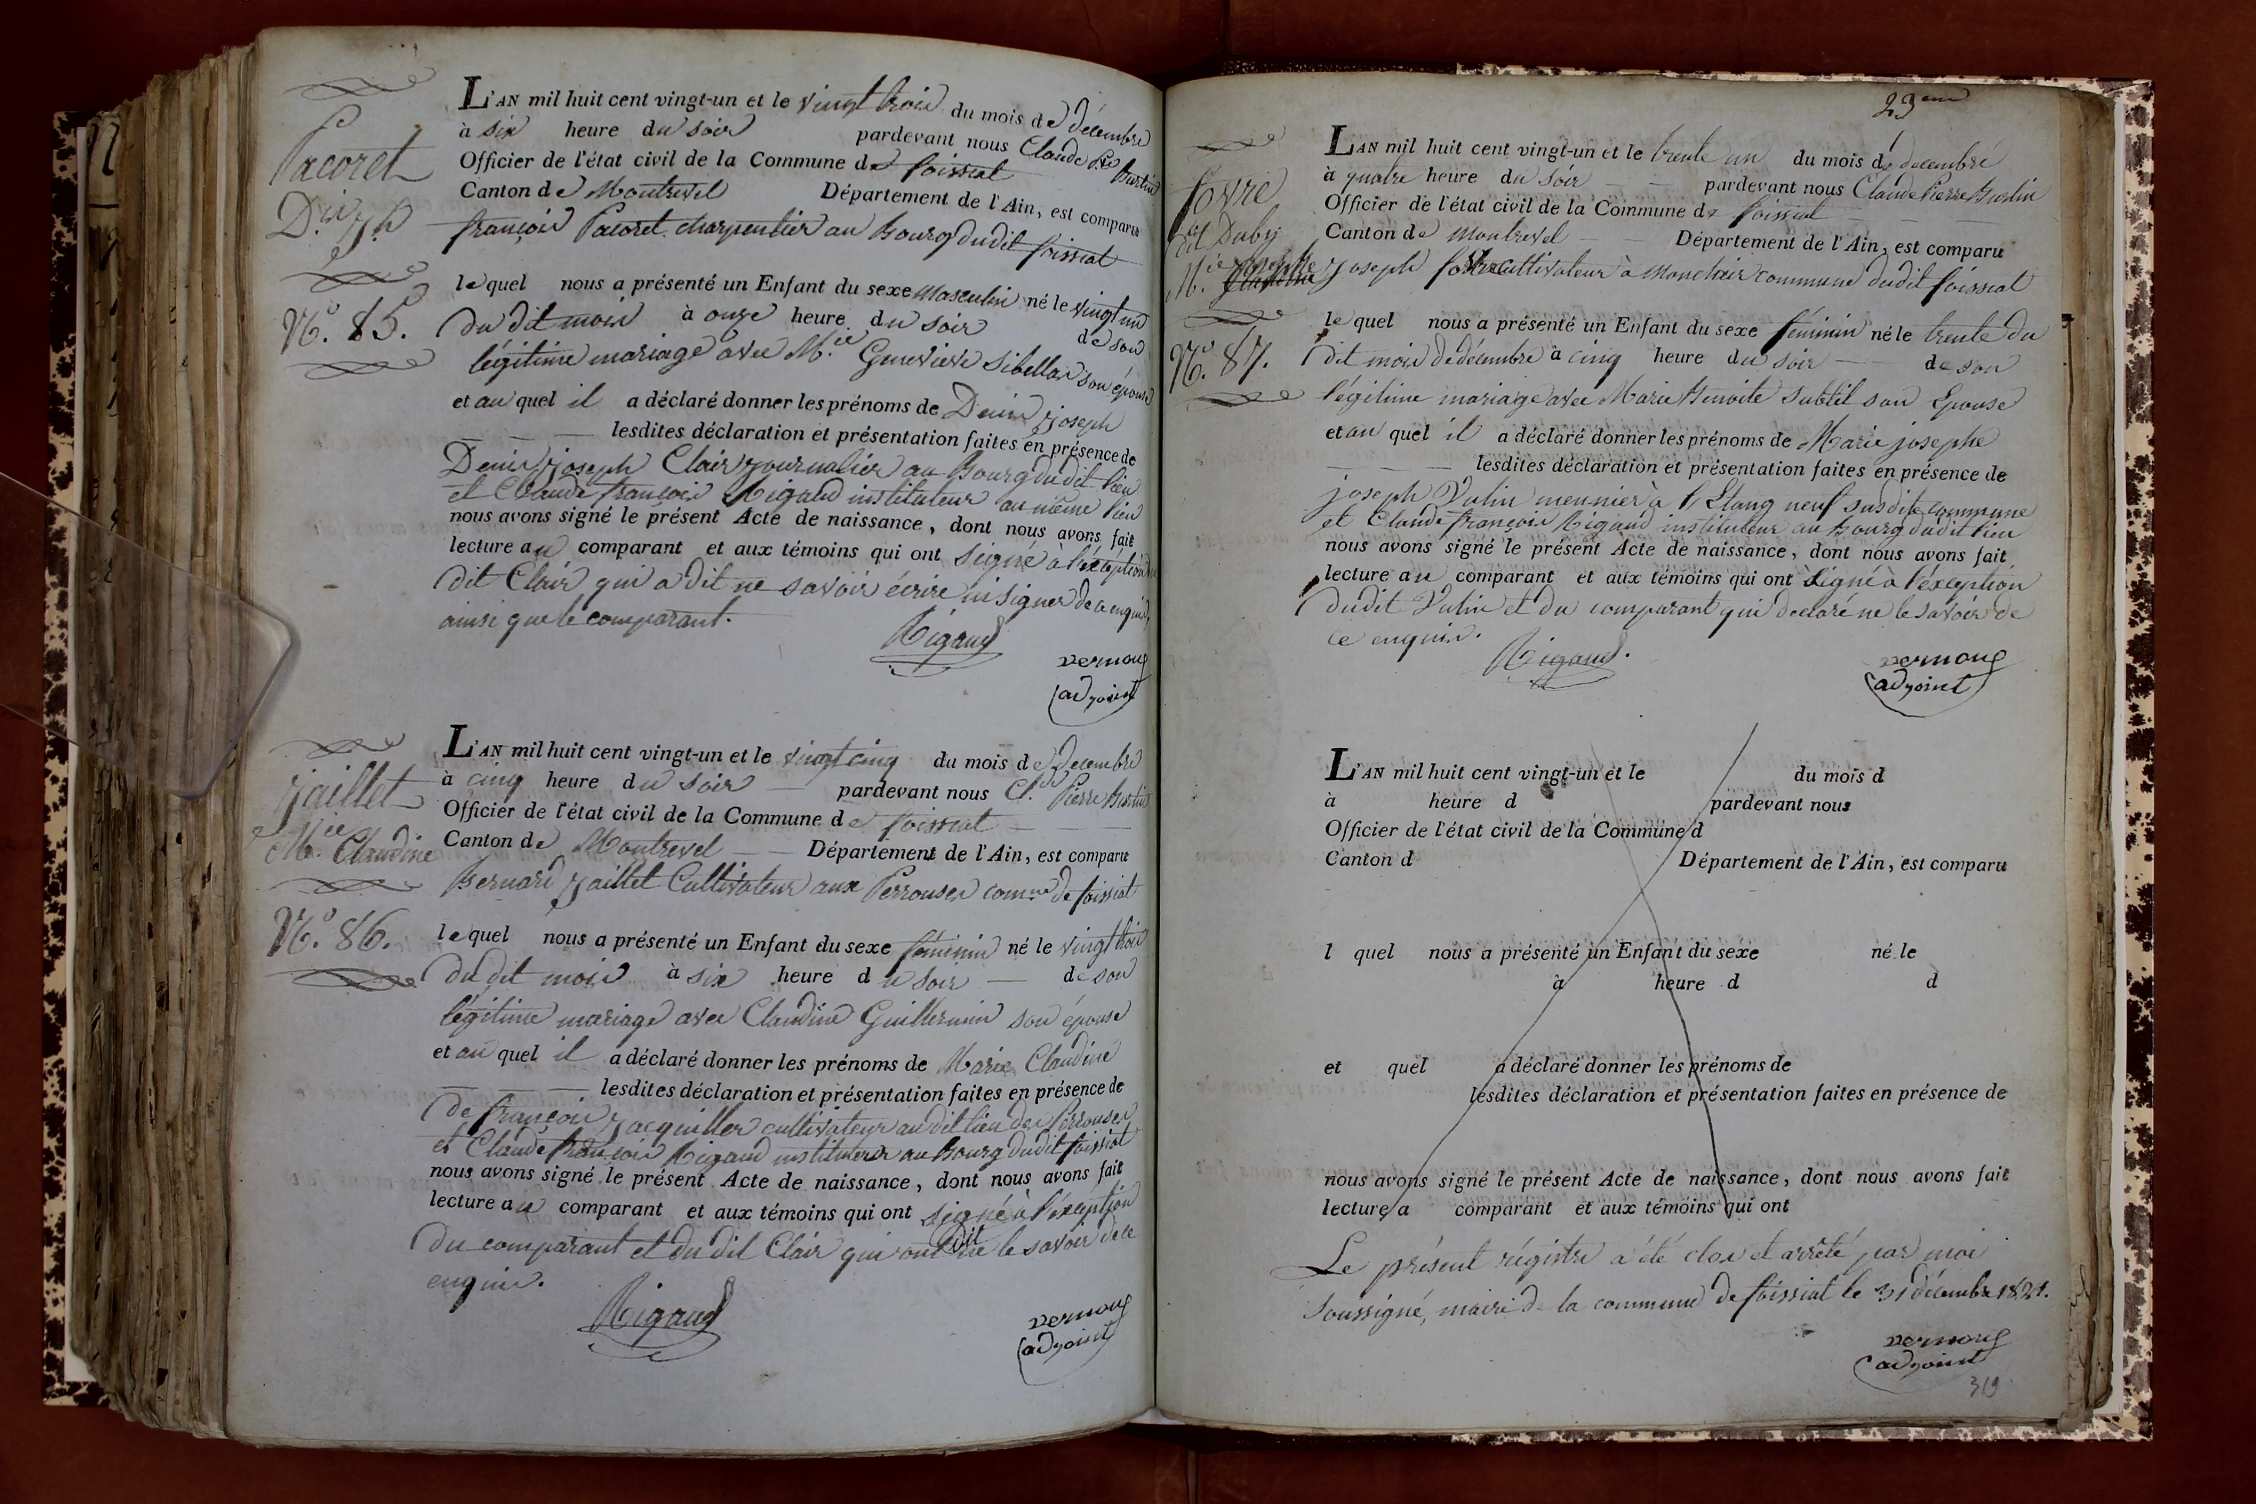 Pacoret
D.is J.h
N.o 85.
L'AN mil huit cent vingt-un et le vingt trois du mois de décembre
à six heure du soir pardevant nous Claude P.re Burtin
Officier de l'état civil de la Commune de foissiat
Canton de Montrevel Département de l'Ain, est comparu
françois Pacoret charpentier au Bourg dudit foissiat
lequel nous a présenté un Enfant du sexe masculin né le vingt un
du dit mois à onze heure du soir de son
légitime mariage avec M.ie Genevieve Sibellas son épouse
et au quel il a déclaré donner les prénoms de Denis joseph
lesdites déclaration et présentation faites en présence de
Denis joseph Clair journalier au Bourg du dit lieu
et Claude françois Rigaud instituteur au même lieu
nous avons signé le présent Acte de naissance, dont nous avons fait
lecture au comparant et aux témoins qui ont signé à l'éxception du
dit Clair qui a dit ne savoir écrire ni signer de ce enquis,
ainsi que le comparant.
Rigaud
vernoux
adjoint
Jaillet
M.ie Claudine
N.o 86.
L'AN mil huit cent vingt-un et le vingt cinq du mois de Décembre
à cinq heure du soir pardevant nous Cl.de Pierre Burtin
Officier de l'état civil de la Commune de foissiat
Canton de Montrevel Département de l'Ain, est comparu
Bernard Jaillet Cultivateur aux Perrouses com.ne de foissiat
lequel nous a présenté un Enfant du sexe féminin né le vingt trois
du dit mois à six heure du soir de son
légitime mariage avec Claudine Guillermin son épouse
et au quel il a déclaré donner les prénoms de Marie Claudine
lesdites déclaration et présentation faites en présence de
de françois Jacquiller cultivateur au dit lieu des Perrouses
et Claude françois Rigaud instituteur au Bourg dudit foissiat
nous avons signé le présent Acte de naissance, dont nous avons fait
lecture au comparant et aux témoins qui ont signé à l'éxception
du comparant et du dit Clair qui ont dit ne le savoir de ce
enquis.
Rigaud
vernoux
adjoint
23eme
fovre
dit Duby
M.ie josephe
Claudine
N.o 87.
L'AN mil huit cent vingt-un et le trente un du mois de decembre
à quatre heure du soir pardevant nous Claude Pierre Burtin
Officier de l'état civil de la Commune de foissiat
Canton de Montrevel Département de l'Ain, est comparu
joseph fovre Cultivateur à Monclair commune dudit foissiat
lequel nous a présenté un Enfant du sexe féminin né le trente du
dit mois de décembre à cinq heure du soir de son
légitime mariage avec Marie Benoite Subtil son Epouse
et au quel il a déclaré donner les prénoms de Marie josephe
lesdites déclaration et présentation faites en présence de
joseph Vulin meunier à l'Etang neuf susdite commune
et Claude françois Rigaud instituteur au Bourg dudit lieu
nous avons signé le présent Acte de naissance, dont nous avons fait
lecture au comparant et aux témoins qui ont signé à l'éxception
dudit Vulin et du comparant qui declaré ne le savoir de
ce enquis.
Rigaud.
vernoux
adjoint
L'AN mil huit cent vingt-un et le du mois d
à heure d pardevant nous
Officier de l'état civil de la Commune d
Canton d Département de l'Ain, est comparu
l quel nous a présenté un Enfant du sexe né le
à heure d d
et quel a déclaré donner les prénoms de
lesdites déclaration et présentation faites en présence de
nous avons signé le présent Acte de naissance, dont nous avons fait
lecture a comparant et aux témoins qui ont
Le présent régistre a été clos et arrêté par moi
soussigné, maire de la commune de foissiat le 31 décembre 1821.
vernoux
adjoint
319